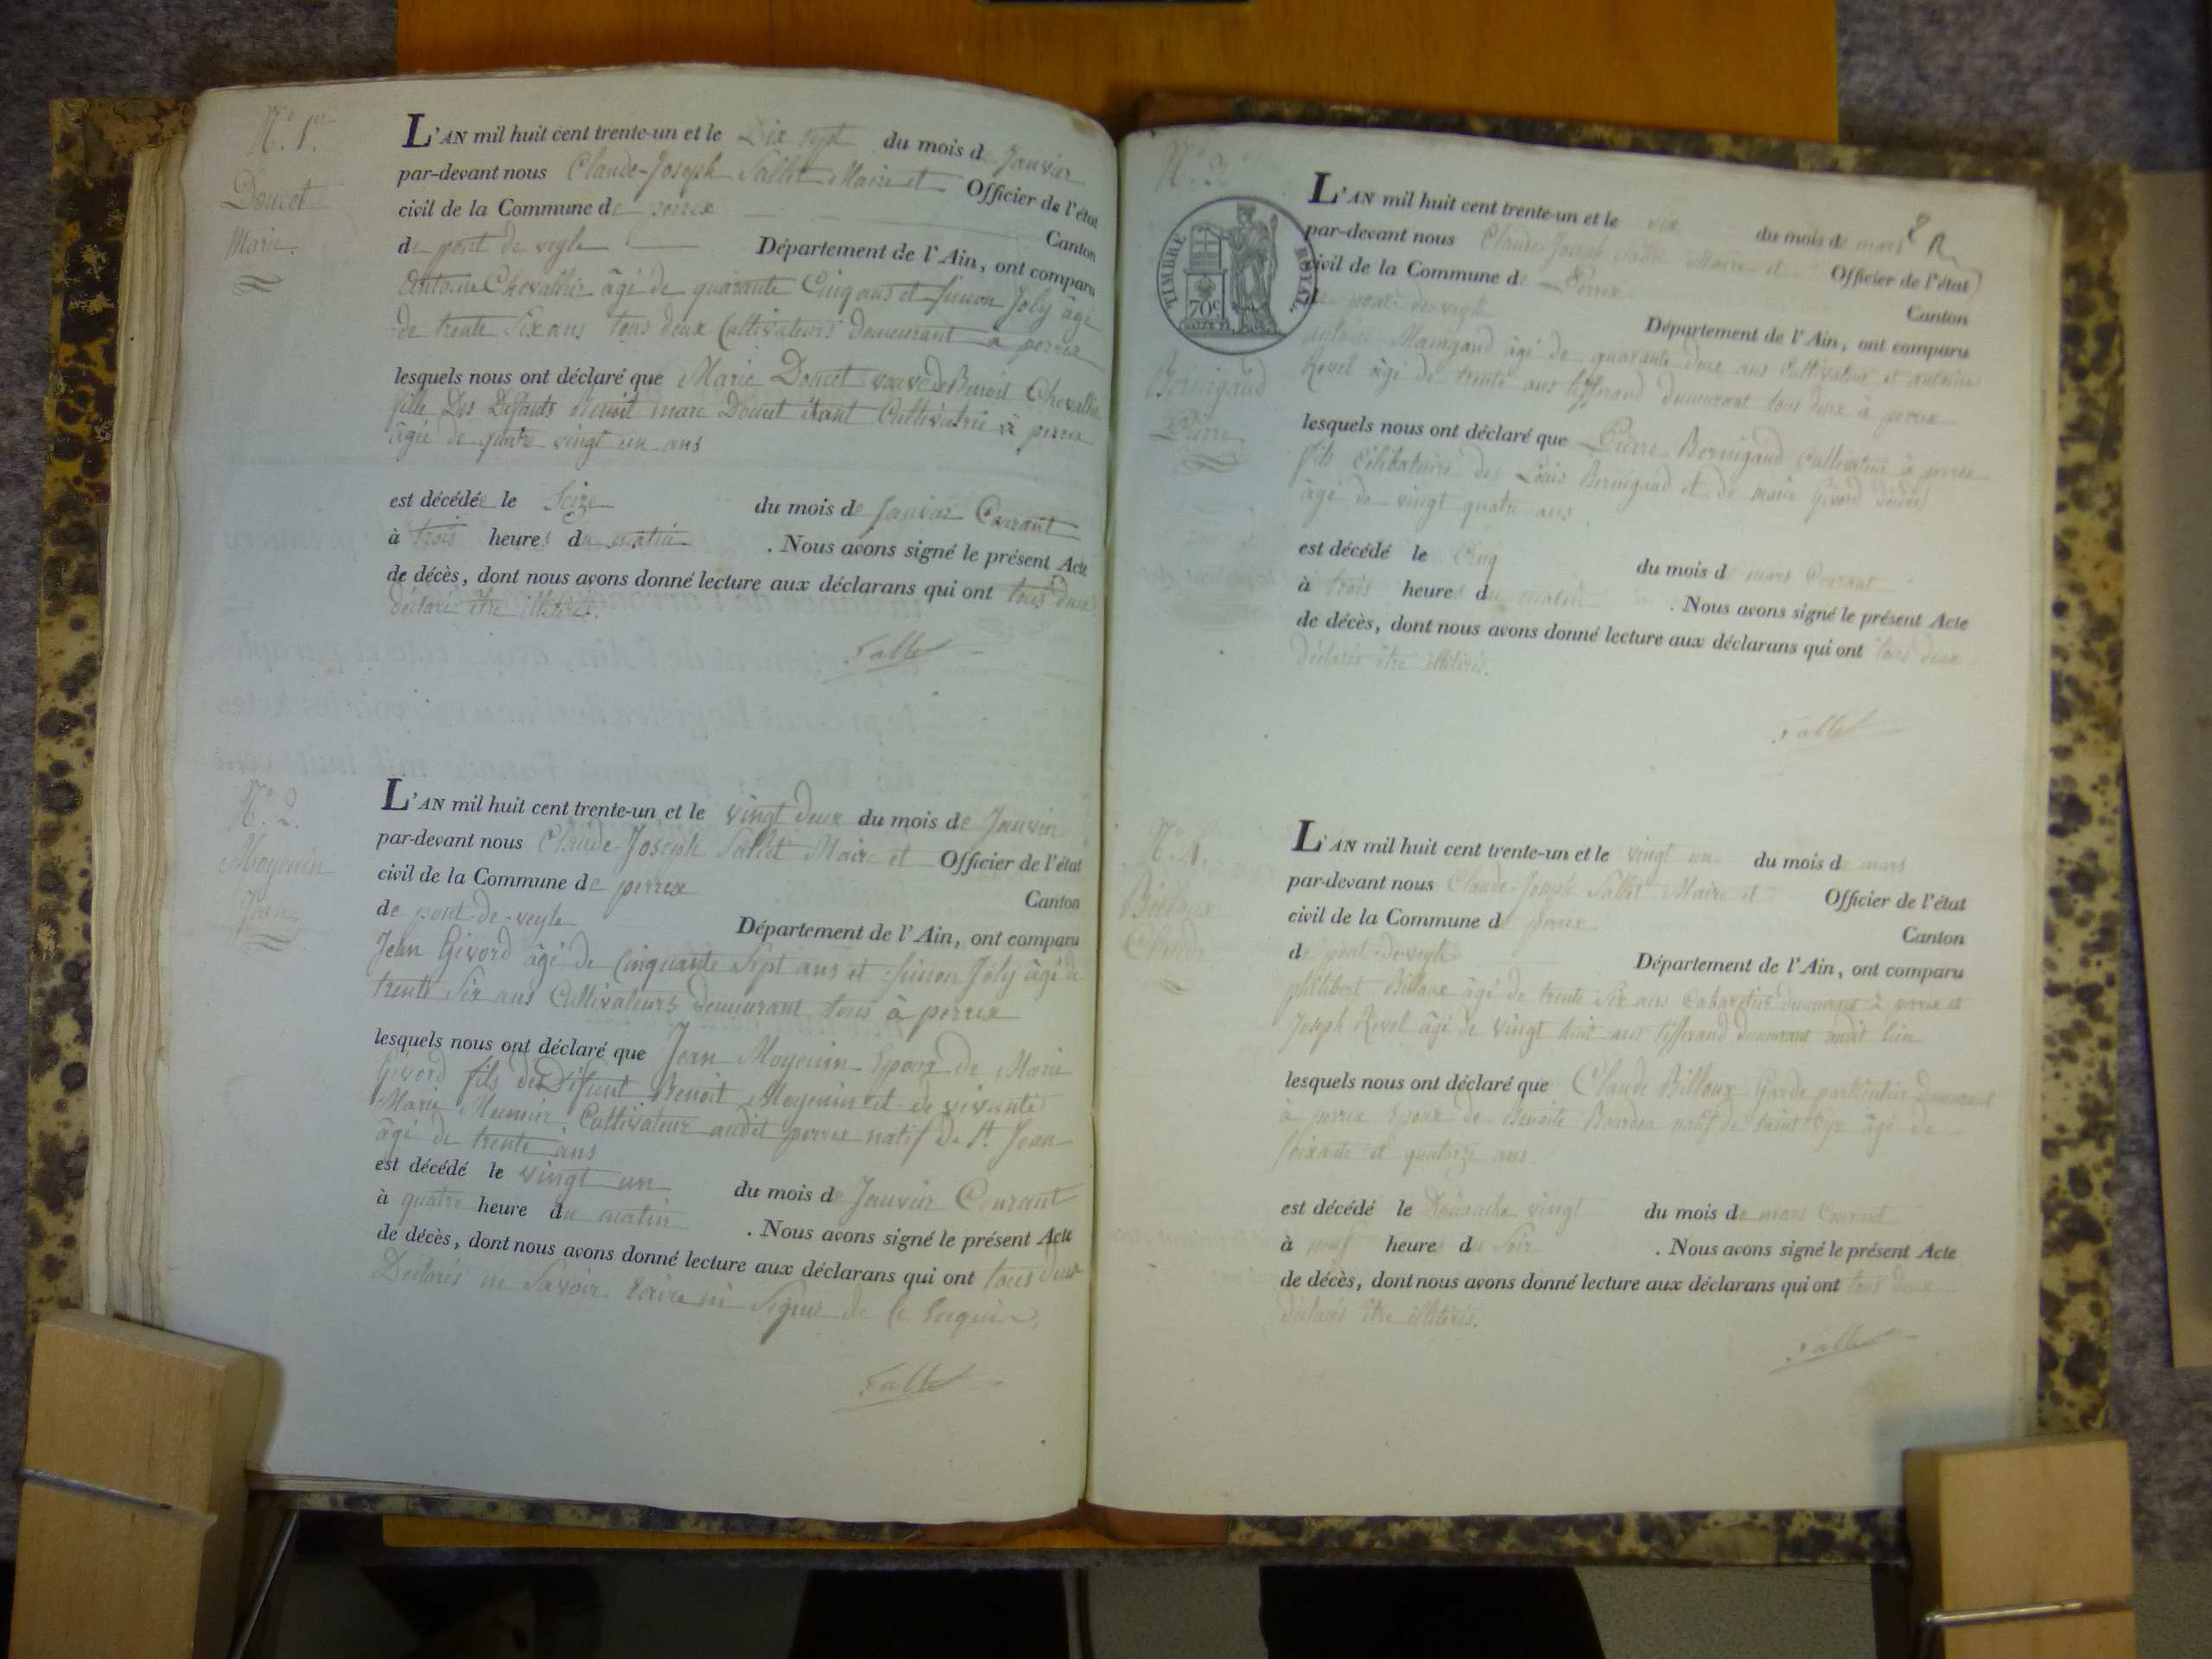 N.° 1.er
Doucet
Marie
L'AN mil huit cent trente-un et le Dix sept du mois de Janvier
par-devant nous Claude-Joseph Sallet Maire et Officier de l'état
civil de la Commune de perrex Canton
de pont de veyle Département de l'Ain, ont comparu
Antoine Chevallier âgé de quarante Cinq ans et Simon Joly âgé
de trente Six ans tous deux Cultivateurs demeurant à perrex
lesquels nous ont déclaré que Marie Doucet veuve de Benoit Chevallier
fille Des Défunts Benoit marc Doucet étant Cultivatrice à perrex
âgée de quatre vingt un ans
est décédée le Seize du mois de Janvier Courant
à trois heures du matin . Nous avons signé le présent Acte
de décès, dont nous avons donné lecture aux déclarans qui ont tous deux
déclaré être illitérés.
Sallet
N.° 2.
Moyenin
Jean
L'AN mil huit cent trente-un et le vingt deux du mois de Janvier
par-devant nous Claude-Joseph Sallet Maire et Officier de l'état
civil de la Commune de perrex Canton
de pont-de-veyle Département de l'Ain, ont comparu
Jean Givord âgé de Cinquante Sept ans et Simon Joly âgé de
trente Six ans Cultivateurs demeurant tous à perrex
lesquels nous ont déclaré que Jean Moyenin Epoux de Marie
Givord fils de Défunt Benoit Moyenin et de vivante
Marie Meunier, Cultivateur audit perrex natif de St. Jean
âgé de trente ans
est décédé le vingt un du mois de Janvier Courant
à quatre heure du matin . Nous avons signé le présent Acte
de décès, dont nous avons donné lecture aux déclarans qui ont tous deux
Déclarés ne Savoir Ecrire ni Signer de Ce Enquis.
Sallet
N.° 3.
TIMBRE ROYAL
70c.
Bernigaud
Pierre
L'AN mil huit cent trente-un et le Six du mois de mars
par-devant nous Claude-Joseph Sallet Maire et Officier de l'état
civil de la Commune de Perrex Canton
de pont-de-veyle Département de l'Ain, ont comparu
antoine Maingaud âgé de quarante deux ans Cultivateur et antoine
Revel âgé de trente ans tisserand demeurant tous deux à perrex
lesquels nous ont déclaré que Pierre Bernigaud Cultivateur à perrex
fils Célibataire des Louis Bernigaud et de marie Givord décédés
âgé de vingt quatre ans
est décédé le Cinq du mois de mars Courant
à trois heures du matin . Nous avons signé le présent Acte
de décès, dont nous avons donné lecture aux déclarans qui ont tous deux
Déclarés être illitérés.
Sallet
N.° 4.
Billoux
Claude
L'AN mil huit cent trente-un et le vingt un du mois de mars
par-devant nous Claude-Joseph Sallet Maire et Officier de l'état
civil de la Commune de perrex Canton
de pont-de-veyle Département de l'Ain, ont comparu
philibert Billoux âgé de trente Six ans Cabaretier demeurant à perrex et
Joseph Revel âgé de vingt huit ans tisserand demeurant audit lieu
lesquels nous ont déclaré que Claude Billoux Garde particulier demeurant
à perrex Epoux de Benoite Bourdon natif de saint Cyr âgé de
Soixante et quatorze ans
est décédé le Dimanche vingt du mois de mars Courant
à neuf heures du Soir . Nous avons signé le présent Acte
de décès, dont nous avons donné lecture aux déclarans qui ont tous deux
déclarés être illitérés.
Sallet